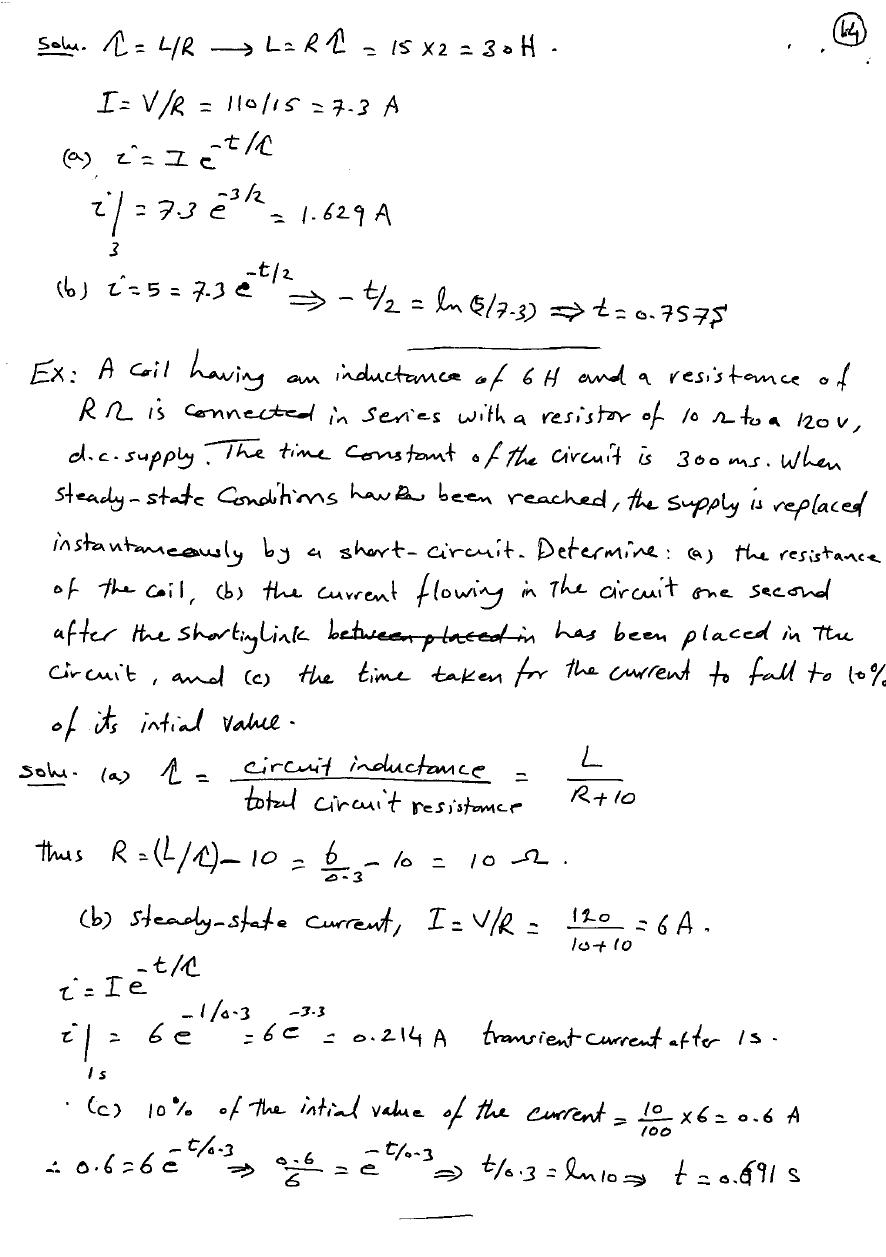 44
Solu. τ = L/R → L = Rτ = 15 × 2 = 30 H .
I = V/R = 110/15 = 7.3 A
(a) i = I e^{-t/τ}
i|_3 = 7.3 e^{-3/2} = 1.629 A
(b) i = 5 = 7.3 e^{-t/2} ⇒ -t/2 = ln (5/7.3) ⇒ t = 0.757s
Ex: A Coil having an inductance of 6 H and a resistance of
R Ω is connected in series with a resistor of 10 Ω to a 120 v,
d.c. supply. The time constant of the circuit is 300 ms. When
steady-state Conditions have been reached, the supply is replaced
instantaneously by a short-circuit. Determine: (a) the resistance
of the coil, (b) the current flowing in the circuit one second
after the shorting link between placed in has been placed in the
circuit, and (c) the time taken for the current to fall to 10%
of its intial value.
Solu. (a) τ = circuit inductance / total circuit resistance = L / R+10
thus R = (L/τ) - 10 = 6/0.3 - 10 = 10 Ω .
(b) steady-state current, I = V/R = 120/10+10 = 6 A .
i = I e^{-t/τ}
i|_{1s} = 6 e^{-1/0.3} = 6 e^{-3.3} = 0.214 A transient current after 1s .
(c) 10% of the intial value of the current = 10/100 × 6 = 0.6 A
∴ 0.6 = 6 e^{-t/0.3} ⇒ 0.6/6 = e^{-t/0.3} ⇒ t/0.3 = ln 10 ⇒ t = 0.691 s